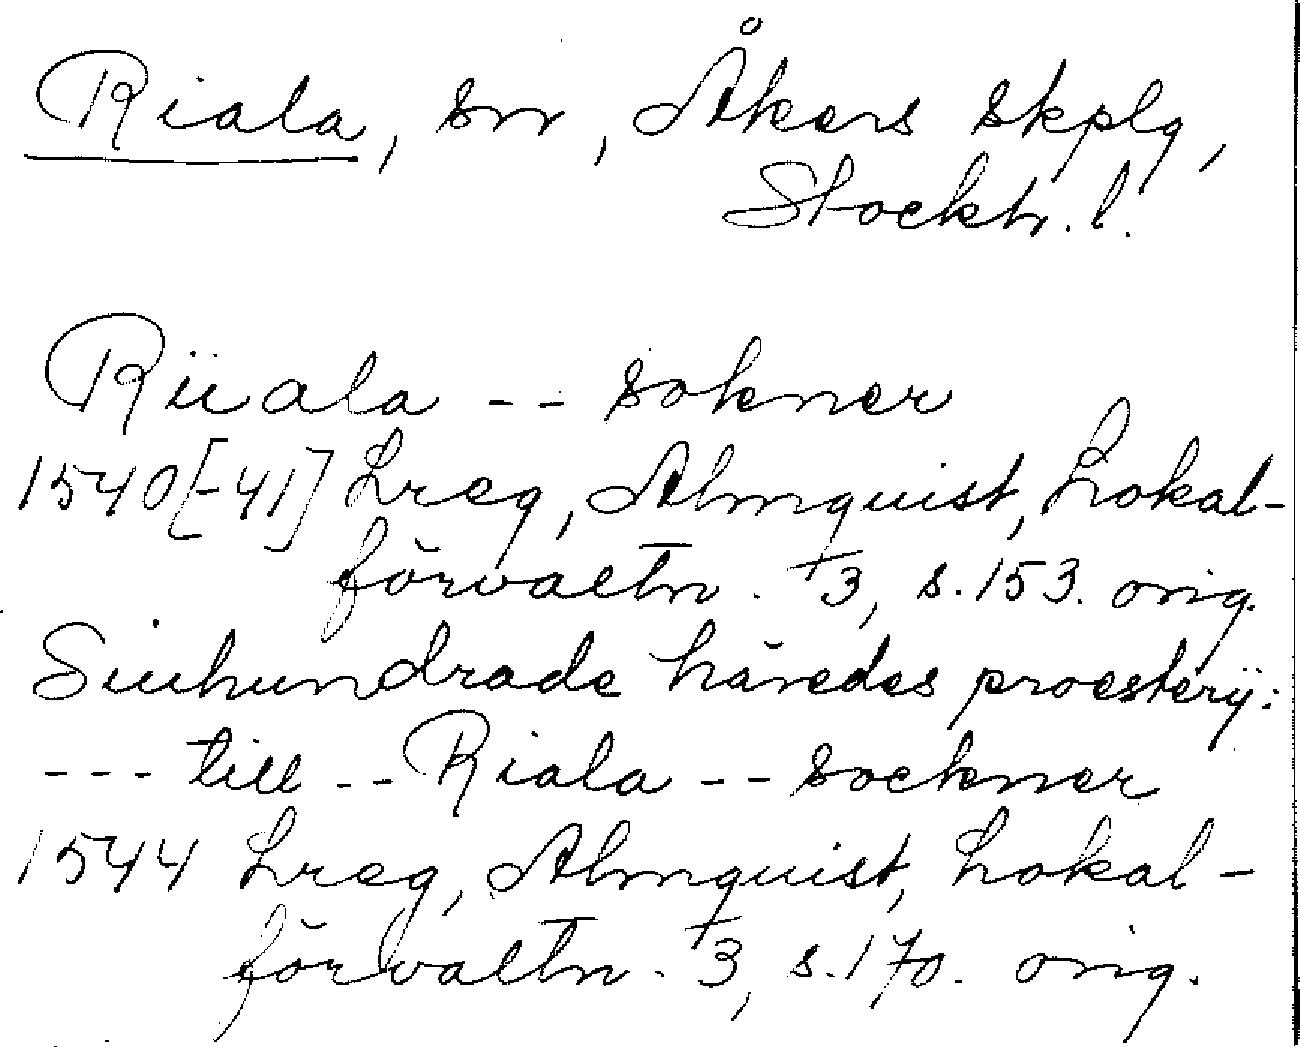 Riala, sn, Åkers skplg,
Stockh. l.
Riiala -- sokner
1540[-41] Lreg, Almquist, Lokal-
förvaltn. 3, s. 153. orig.
Siuhundrade häredes proesterij:
--- till -- Riala -- sockner
1544 Lreg, Almquist, Lokal-
förvaltn. 3, s. 170. orig.